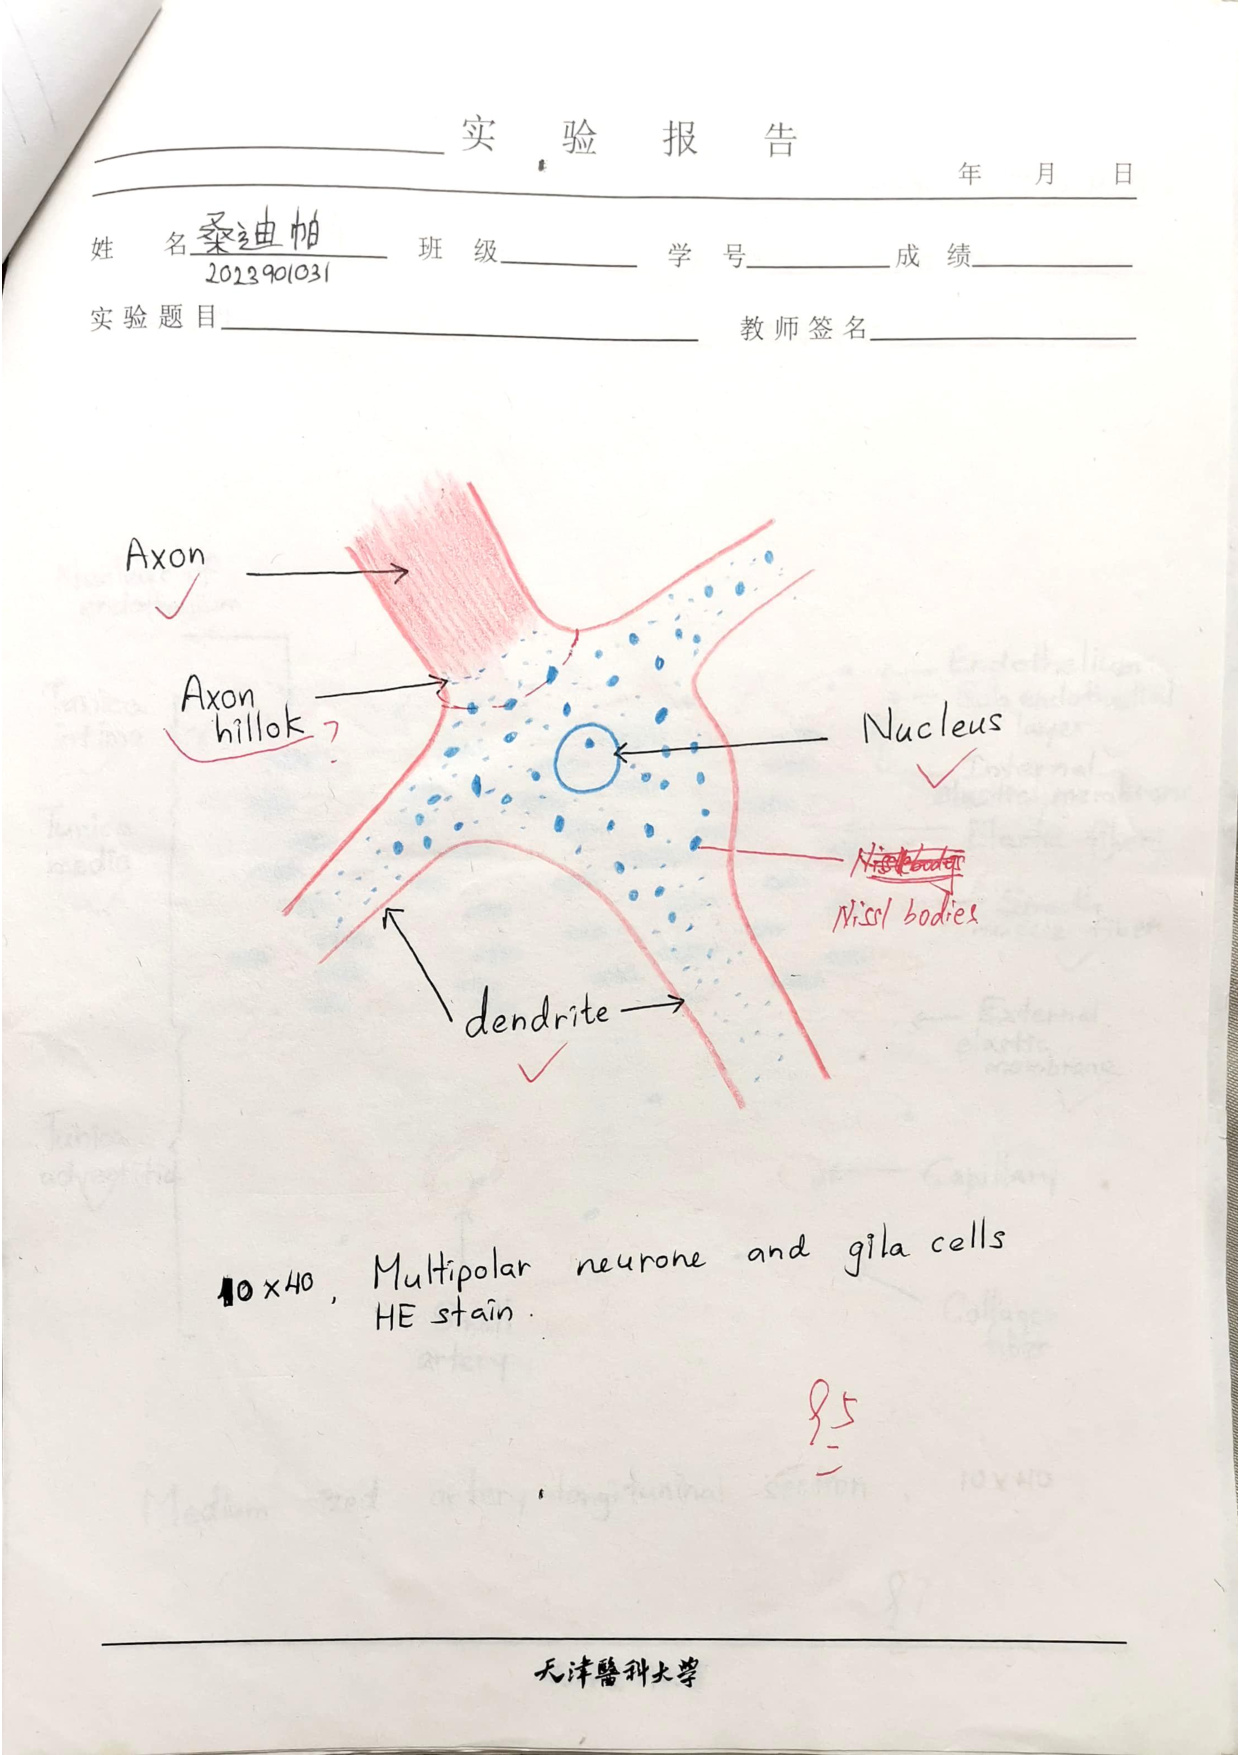 实 验 报 告
年 月 日
姓 名 桑迪帕 班 级 学 号 成 绩
2023901031
实验题目 教师签名
Axon
Axon
hillok ?
Nucleus
Nissl bodies
dendrite
10×40, Multipolar neurone and gila cells
HE stain.
95
天津醫科大学